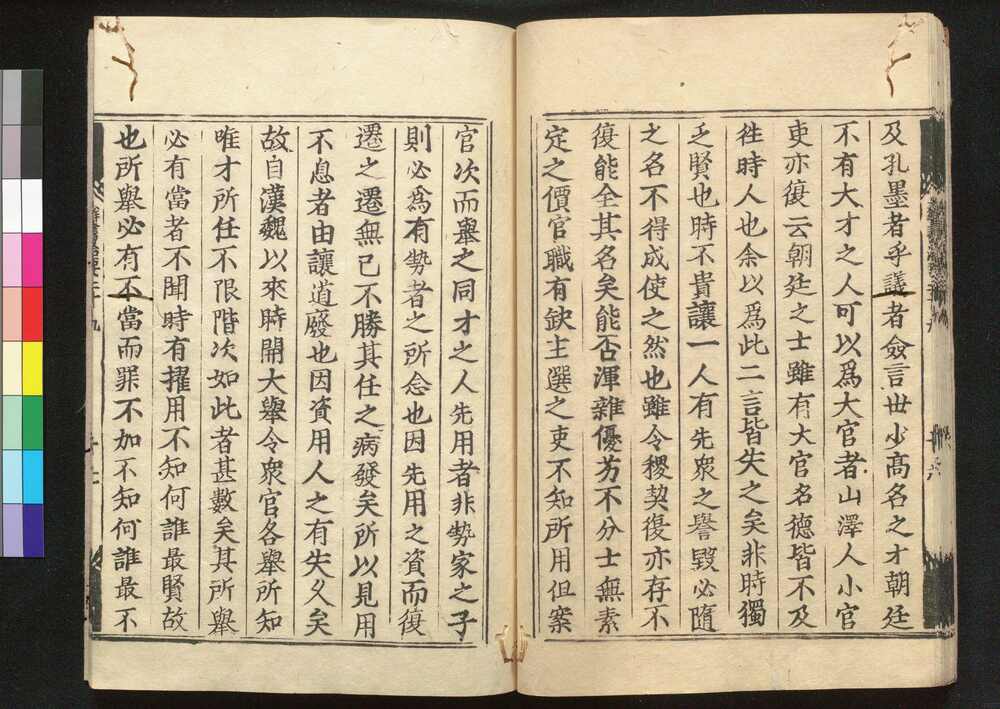 及孔墨者乎議者僉言世少髙名之才朝廷
不有大才之人可以爲大官者山澤人小官
吏亦復云朝廷之士雖有大官名德皆不及
徃時人也余以爲此二言皆失之矣非時獨
乏賢也時不貴讓一人有先衆之譽毀必隨
之名不得成使之然也雖令稷契復亦存不
復能全其名矣能否渾雜優劣不分士無素
定之價官職有缺主選之吏不知所用但案
官次而舉之同才之人先用者非勢家之子
則必爲有勢者之所念也因先用之資而復
遷之遷無已不勝其任之病發矣所以見用
不息者由讓道廢也因資用人之有失久矣
故自漢魏以來時開大舉令衆官各舉所知
唯才所任不限階次如此者甚數矣其所舉
必有當者不聞時有擢用不知何誰最賢故
也所舉必有不當而罪不加不知何誰最不